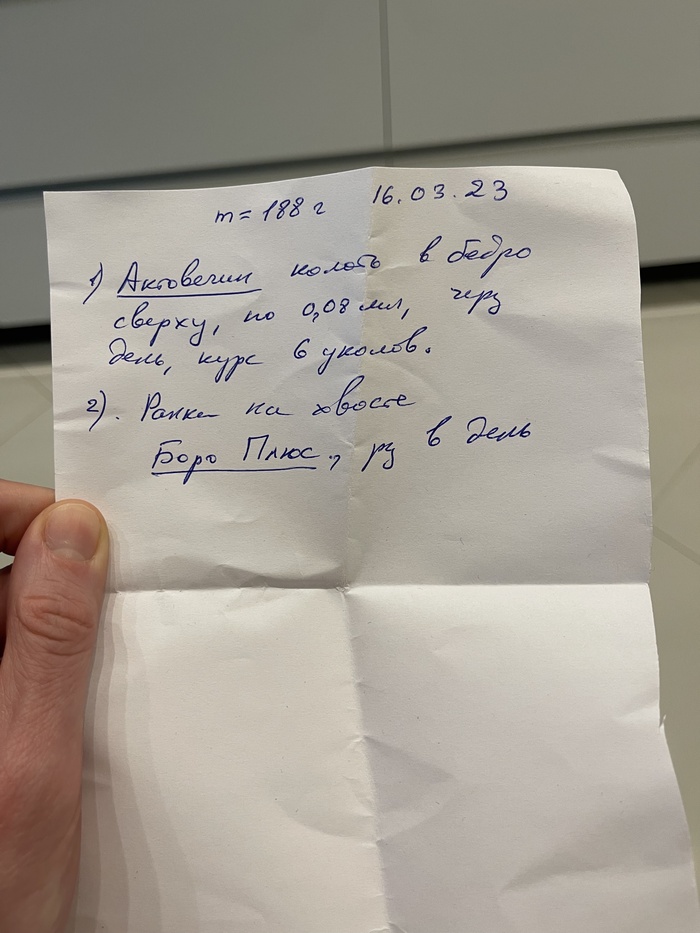 m = 188 г 16.03.23
1) Актовегин колоть в бедро
сверху, по 0,08 мл, через
день, курс 6 уколов.
2). Ранки на хвосте
Боро Плюс, раз в день